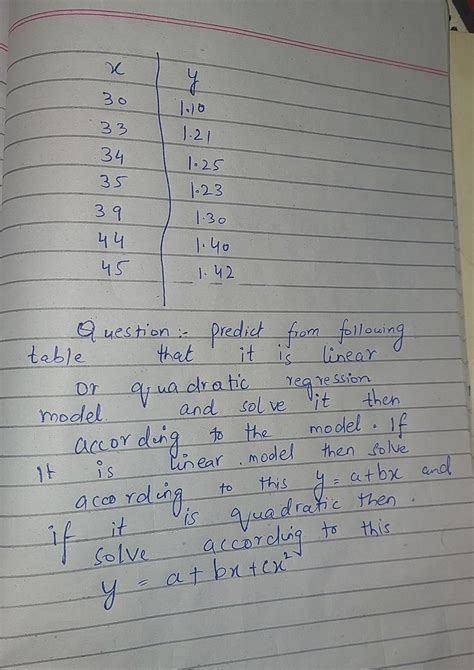 x y
30 1.10
33 1.21
34 1.25
35 1.23
39 1.30
44 1.40
45 1.42
Question:- predict from following
table that it is linear
or quadratic regression
model and solve it then
according to the model. If
It is linear model then solve
according to this y = a+bx and
if it is quadratic then.
solve according to this
y = a+bx+cx²